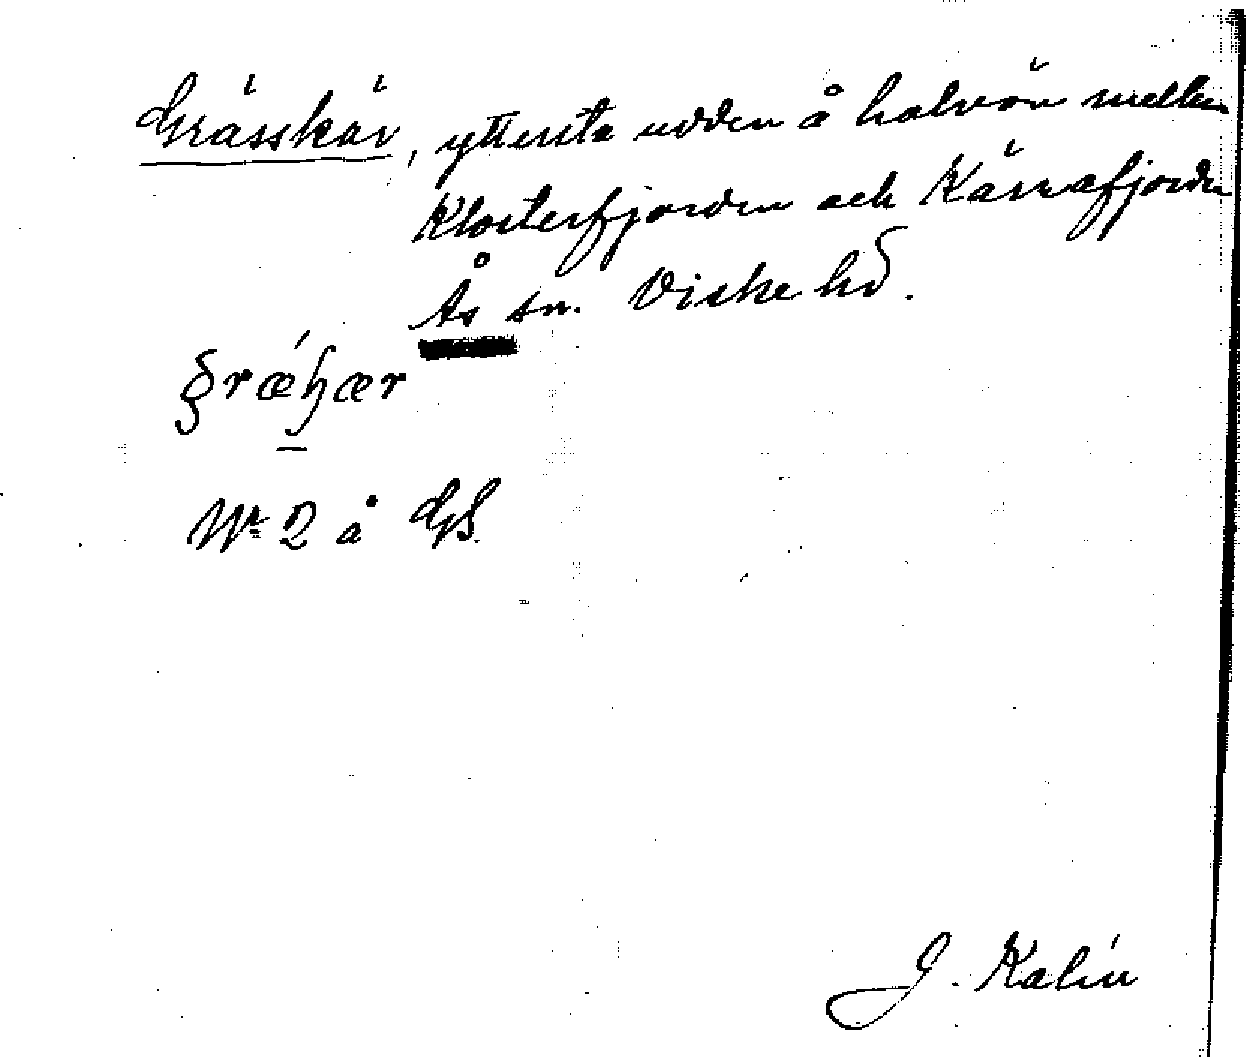 Grässkär, yttersta udden å halvön mellan
Klosterfjorden och Kärrafjorden
Ås sn. Viske hd.
Nr 2 å GS.
J. Kalén